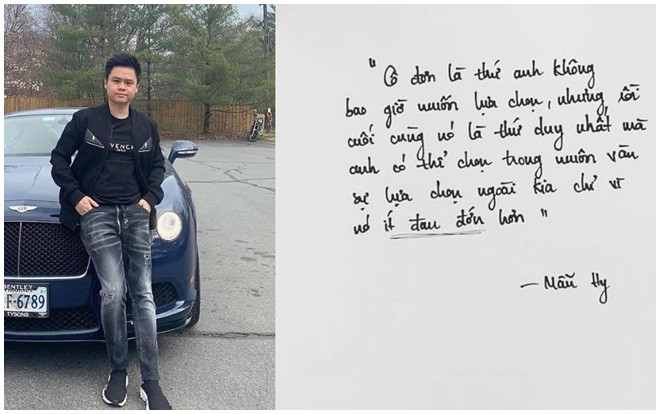 VENCH
BENTLEY
F-6789
TYSONS
"Cô đơn là thứ anh không
bao giờ muốn lựa chọn, nhưng rồi
cuối cùng nó là thứ duy nhất mà
anh có thể chọn trong muôn vàn
sự lựa chọn ngoài kia chỉ vì
nó ít đau đớn hơn"
- Mẫu Hy